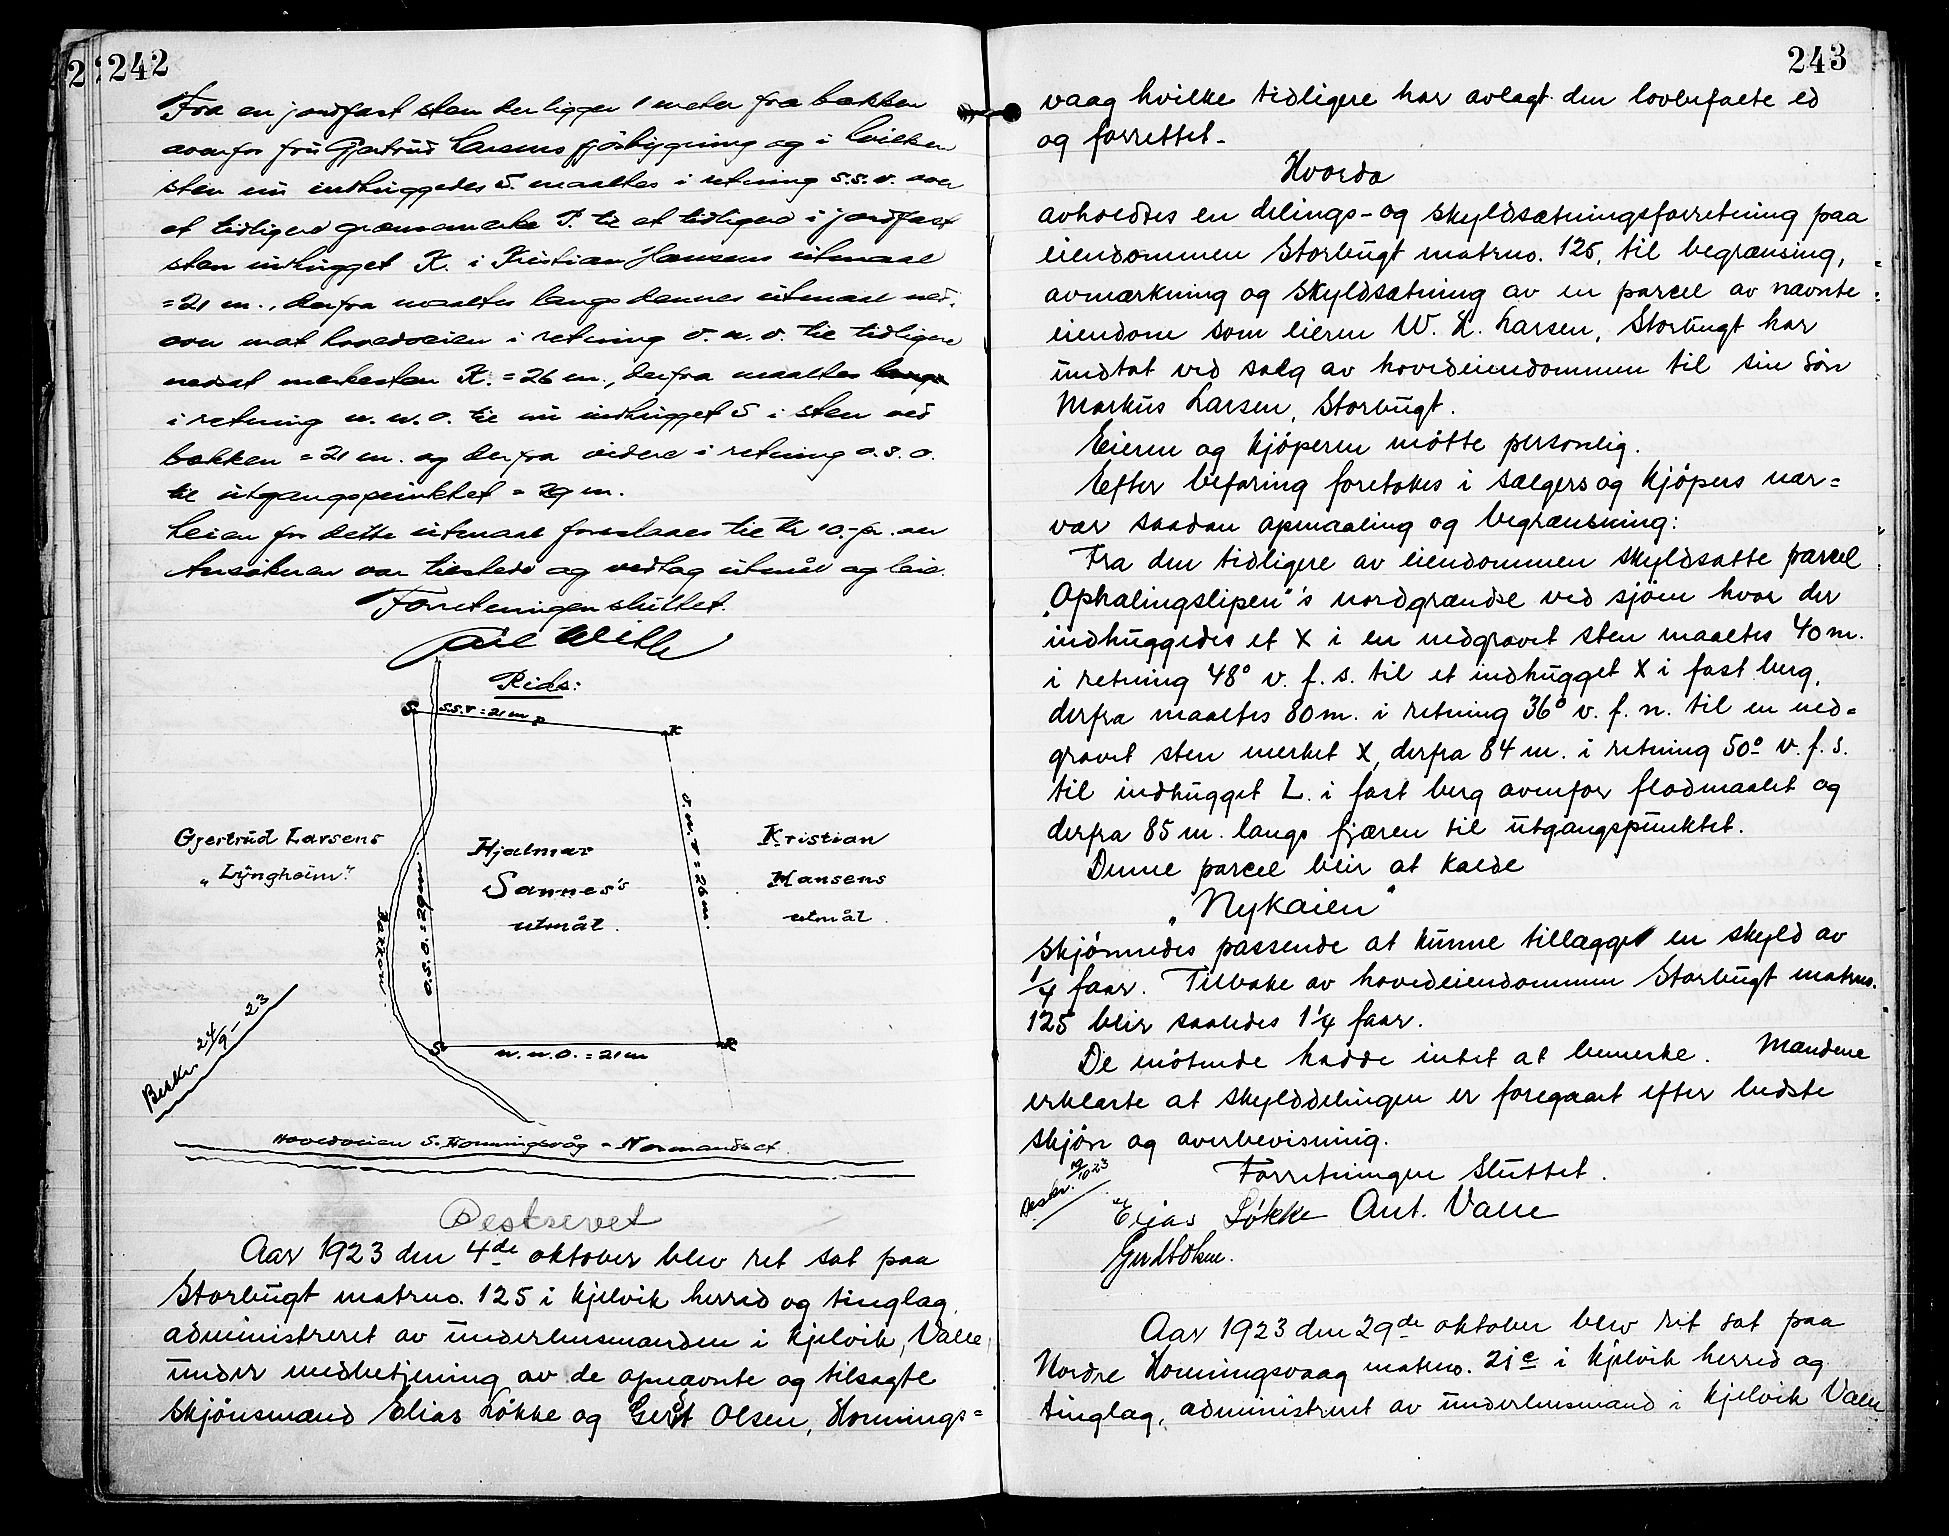 242
Fra en jordfast sten der ligger 1 meter fra bækken
ovenfor fru Gjertrud Larsens fjösbygning og i hvilken
sten nu indhuggedes S. maaltes i retning s.s.v. over
et tidligere grænsemerke P. til et tidligere i jordfast
sten indhugget K. i Kristian Hansens utmaal
= 21 m., derfra maaltes langs dennes utmaal ned-
over mot hovedveien i retning v.n.v. til tidligere
nedsat merkesten K. = 26 m., derfra maaltes langs
i retning n.n.o. til nu indhugget S i sten ved
bækken = 21 m. og derfra videre i retning o.s.o.
til utgangspunktet = 29 m.
Leien for dette utmaal foreslaaes til kr 10.- pr. aar
Ansökeren var tilstede og vedtog utmål og leie.
Forretningen sluttet.
Rids:
S. s.s.v = 21 m P K
v.n.v = 26 m.
Gjertrud Larsens
„Lyngheim"
Hjalmar
Sannes's
utmål.
Kristian
Hansens
utmål.
o.s.o. = 29 m.
Bækken
S n.n.o. = 21 m K
Beskr. 24/9 - 23
Hovedveien S. Honningsvåg - Normandset.
Beskrevet
Aar 1923 den 4de oktober blev ret sat paa
Storbugt matrno. 125 i Kjelvik herred og tinglag,
administreret av underlensmanden i Kjelvik, Valle
under medbetjening av de opnævnte og tilsagte
skjönsmænd Elias Løkke og Gerst Olsen, Honnings=
243
vaag hvilke tidligere har avlagt den lovbefalte ed
og forrettet.
Hvorda
avholdtes en delings- og skyldsætningsforretning paa
eiendommen Storbugt matrno. 125, til begrænsing,
avmærkning og skyldsætning av en parcel av nævnte
eiendom som eieren W. K. Larsen, Storbugt har
undtat ved salg av hovedeiendommen til sin sön
Markus Larsen, Storbugt.
Eieren og kjöperen mötte personlig.
Efter befaring foretokes i sælgers og kjöpers nær=
vær saadan opmaaling og begrænsning:
Fra den tidligere av eiendommen skyldsatte parcel
„Ophalingslipen"'s nordgrændse ved sjöen hvor der
indhuggedes et X i en nedgravet sten maaltes 40 m.
i retning 48° v. f. s. til et indhugget X i fast berg,
derfra maaltes 80 m. i retning 36° v. f. n. til en ned=
gravet sten merket X, derfra 84 m. i retning 50° v. f. s.
til indhugget L. i fast berg ovenfor flodmaalet og
derfra 85 m. langs fjæren til utgangspunktet.
Denne parcel blir at kalde
„Nykaien"
skjönnedes passende at kunne tillægges en skyld av
1/4 faar. Tilbake av hovedeiendommen Storbugt matrno.
125 blir saaledes 1 1/4 faar.
De mötende hadde intet at bemerke. Mændene
erklærte at skylddelingen er foregaaet efter bedste
skjön og overbevisning.
Forretningen sluttet.
Beskr. 19/10 23
Elias Løkke Ant. Valle
Aar 1923 den 29de oktober blev ret sat paa
Nordre Honningsvaag matrno. 21c i Kjelvik herred og
tinglag, administreret av underlensmand i Kjelvik Valle